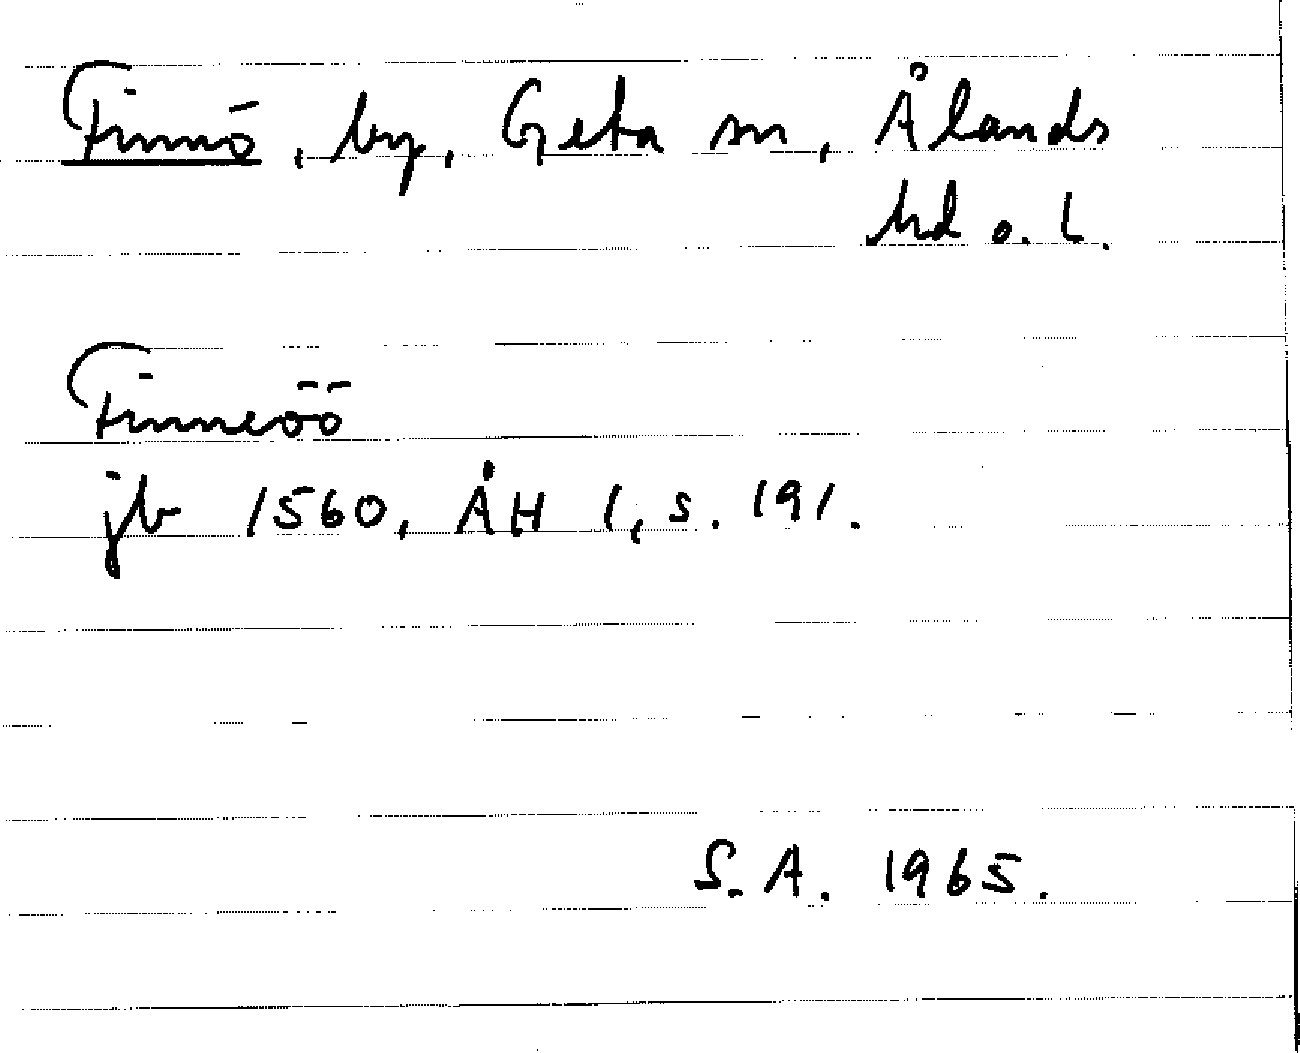 Finnö, by, Geta sn, Ålands
hd o. l.
Finneöö
jb 1560, ÅH 1, s. 191.
S. A. 1965.